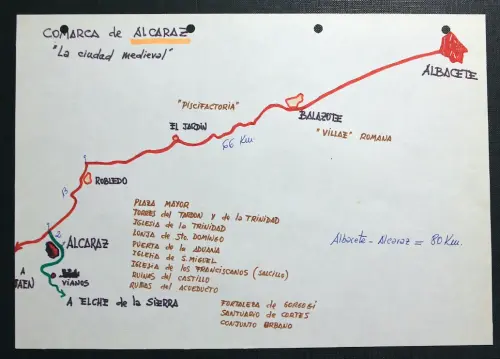 COMARCA de ALCARAZ
"La ciudad medieval"
ALBACETE
"PISCIFACTORIA"
BALAZOTE
EL JARDIN
"VILLAE" ROMANA
66 Km
ROBLEDO
13
2
ALCARAZ
A JAEN
VIANOS
A ELCHE DE LA SIERRA
PLAZA MAYOR
TORRES del TARDON y de la TRINIDAD
IGLESIA de la TRINIDAD
LONJA de Sto. DOMINGO
PUERTA de la ADUANA
IGLESIA de S. MIGUEL
IGLESIA de los FRANCISCANOS (SALCILLO)
RUINAS del CASTILLO
RUINAS del ACUEDUCTO
FORTALEZA de GORGOGI
SANTUARIO de CORTES
CONJUNTO URBANO
Albacete - Alcaraz = 80 Km.